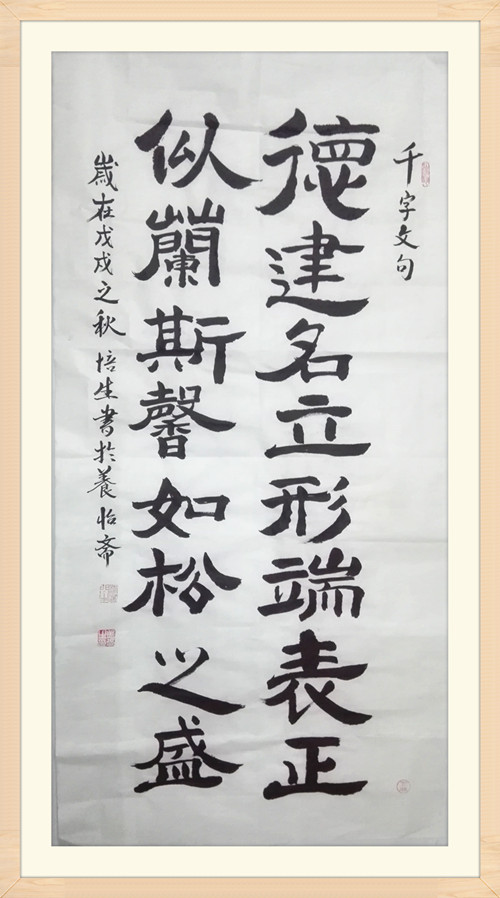 千字文句
德建名立形端表正
似蘭斯馨如松之盛
歲在戊戌之秋 培生書於養怡斋